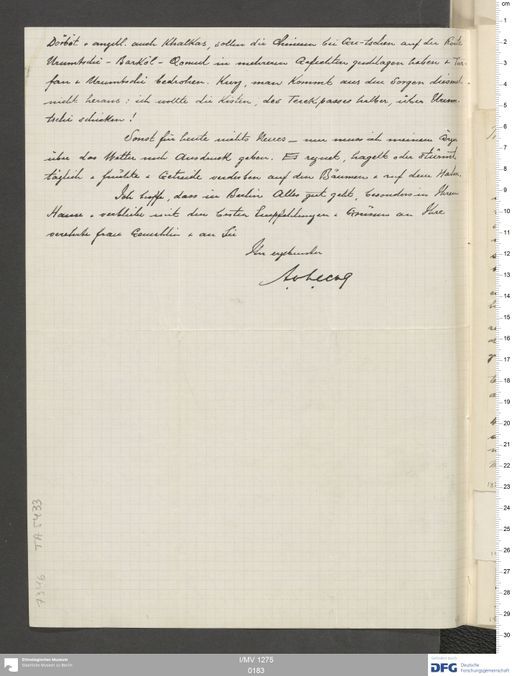 Dörböt + angebl. auch Khalkas, sollen die Chinesen bei Gu-tschen auf der Route
Urumtschi - Barköl - Qomul in mehreren Gefechten geschlagen haben + Tur-
fan + Urumtschi bedrohen. Kurz, man kommt aus den Sorgen diesmal
nicht heraus: ich wollte die Kisten, des Terekpasses halber, über Urum-
tschi schicken!
Sonst für heute nichts Neues — nur muss ich meinem Ärger
über das Wetter noch Ausdruck geben. Es regnet, hagelt oder stürmt
täglich + Früchte + Getreide verderben auf den Bäumen + auf dem Halm.
Ich hoffe, dass in Berlin Alles gut geht, besonders in Ihrem
Hause + verbleibe mit den besten Empfehlungen + Grüssen an Ihre
verehrte Frau Gemahlin + an Sie
Ihr ergebenster
A. v. Lecoq
TA 5433
I/MV 1275
0183
Ethnologisches Museum
Staatliche Museen zu Berlin
DFG Deutsche
Forschungsgemeinschaft